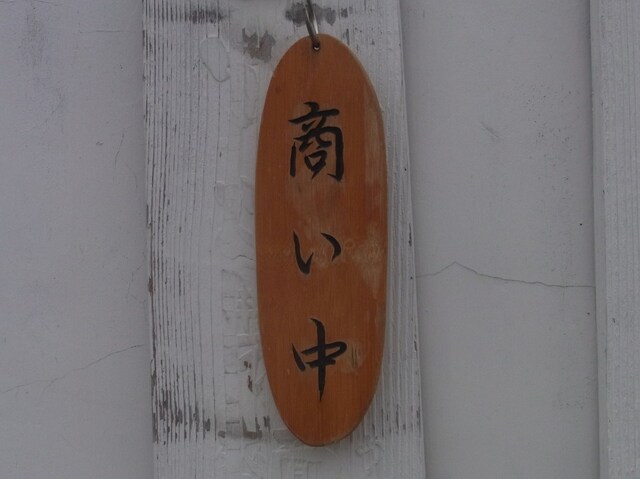 商い中